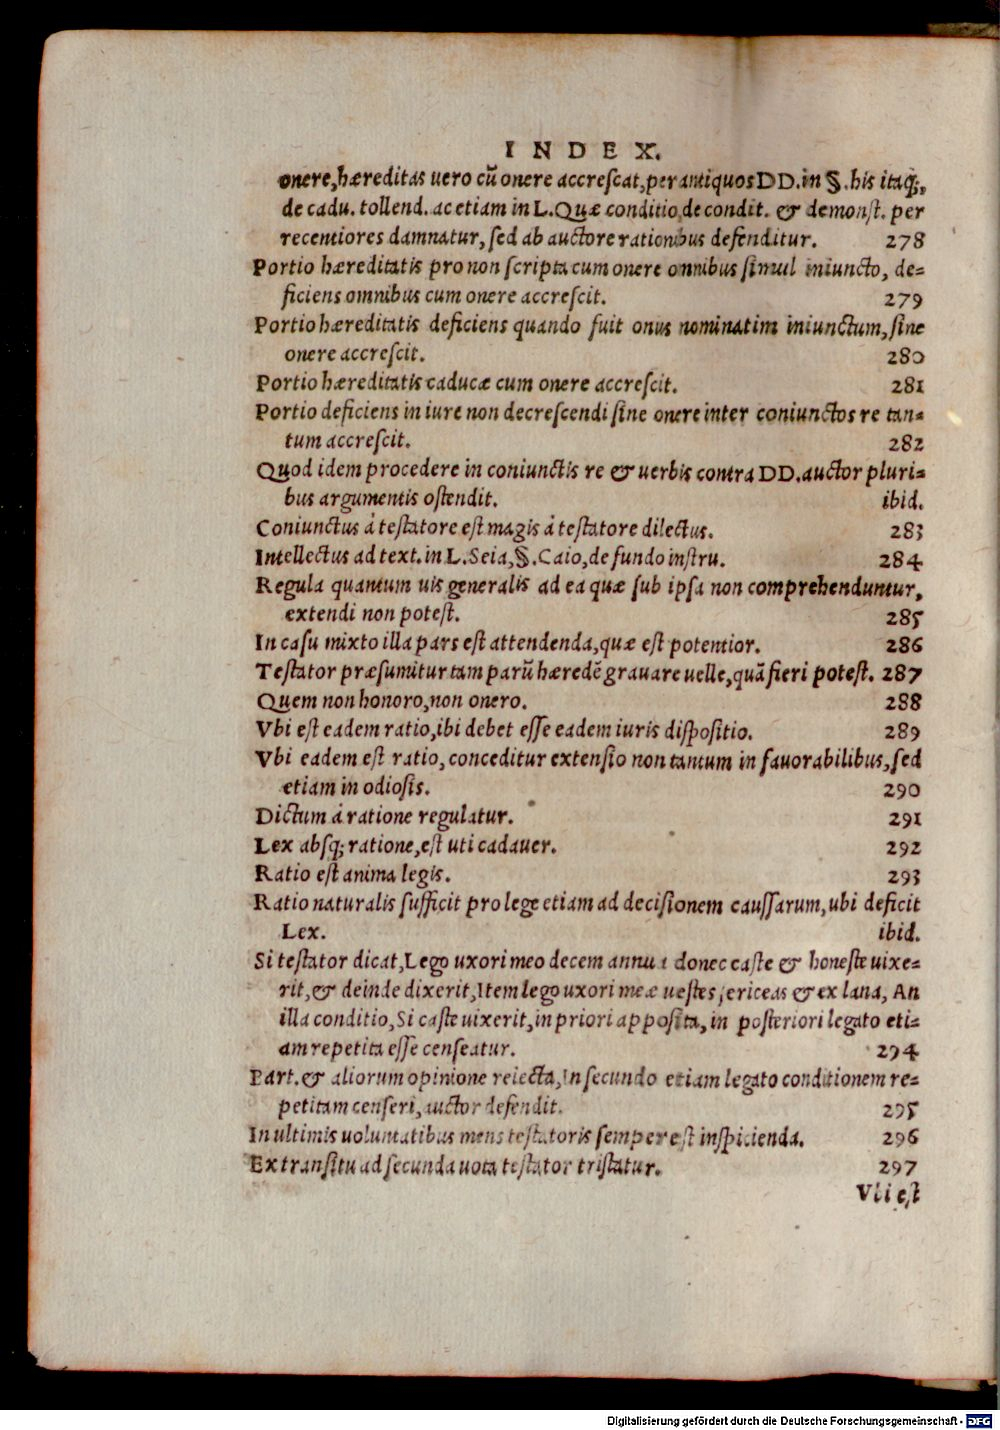 INDEX.
onere, hæreditas uero cũ onere accrescat, per antiquos DD. in §. his itaq;,
de cadu. tollend. ac etiam in L. Quæ conditio, de condit. & demonst. per
recentiores damnatur, sed ab auctore rationibus defenditur. 278
Portio hæreditatis pro non scripta cum onere omnibus simul iniuncto, de-
ficiens omnibus cum onere accrescit. 279
Portio hæreditatis deficiens quando fuit onus nominatim iniunctum, sine
onere accrescit. 280
Portio hæreditatis caducæ cum onere accrescit. 281
Portio deficiens in iure non decrescendi sine onere inter coniunctos re tan-
tum accrescit. 282
Quod idem procedere in coniunctis re & uerbis contra DD. auctor pluri-
bus argumentis ostendit. ibid.
Coniunctus à testatore est magis à testatore dilectus. 283
Intellectus ad text. in L. Seia, §. Caio, de fundo instru. 284
Regula quantum uis generalis ad ea quæ sub ipsa non comprehenduntur,
extendi non potest. 285
In casu mixto illa pars est attendenda, quæ est potentior. 286
Testator præsumitur tam parũ hæredẽ grauare uelle, quã fieri potest. 287
Quem non honoro, non onero. 288
Vbi est eadem ratio, ibi debet esse eadem iuris dispositio. 289
Vbi eadem est ratio, conceditur extensio non tantum in fauorabilibus, sed
etiam in odiosis. 290
Dictum à ratione regulatur. 291
Lex absq; ratione, est uti cadauer. 292
Ratio est anima legis. 293
Ratio naturalis sufficit pro lege etiam ad decisionem caussarum, ubi deficit
Lex. ibid.
Si testator dicat, Lego uxori meo decem annua donec caste & honeste uixe-
rit, & deinde dixerit, Item lego uxori meæ uestes sericeas & ex lana, An
illa conditio, Si caste uixerit, in priori apposita, in posteriori legato eti-
am repetita esse censeatur. 294
Part. & aliorum opinione reiecta, in secundo etiam legato conditionem re-
petitam censeri, auctor defendit. 295
In ultimis uoluntatibus mens testatoris semper est inspicienda. 296
Ex transitu ad secunda uota testator tristatur. 297
est
Digitalisierung gefördert durch die Deutsche Forschungsgemeinschaft - DFG